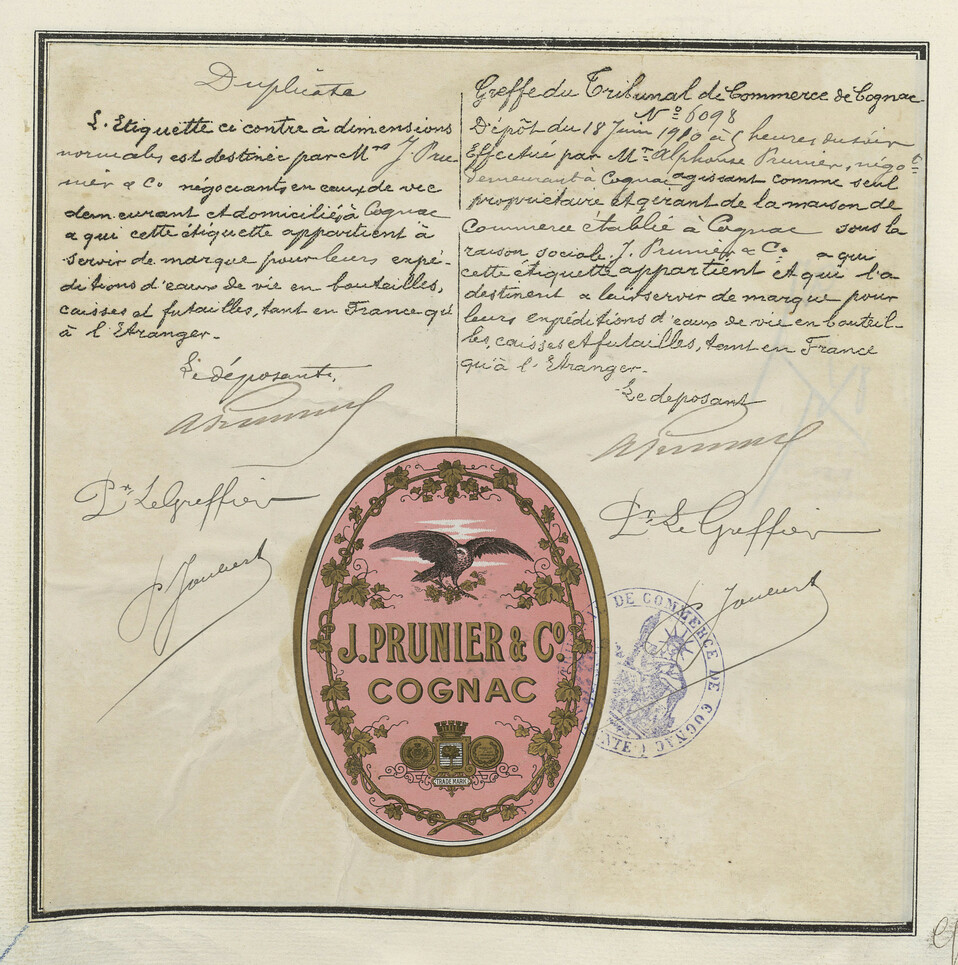 Duplicata
L'Etiquette ci contre à dimensions
normales est destinée par Mrs J. Pru-
nier & Co négociants en eaux de vie
demeurant et domiciliés à Cognac
a qui cette étiquette appartient à
servir de marque pour leurs expé-
ditions d'eaux de vie en bouteilles,
caisses et futailles, tant en France qu'
à l'Etranger.
Le déposant,
APrunier
Pr. Le Greffier
Joubert
Greffe du Tribunal de Commerce de Cognac
No 6098
Dépôt du 18 Juin 1910 à 5 heures du soir
Effectué par Mr. Alphonse Prunier, négot
demeurant à Cognac agissant comme seul
propriétaire et gérant de la maison de
Commerce établie à Cognac sous la
raison sociale J. Prunier & Co. a qui
cette étiquette appartient et qui l'a
destinent a leur servir de marque pour
leurs expéditions d'eaux de vie en bouteil-
les, caisses et futailles, tant en France
qu'à l'Etranger.
Le deposant
APrunier
Pr. Le Greffier
Joubert
J. PRUNIER & Co.
COGNAC
TRADE MARK
DE COMMERCE DE COGNAC